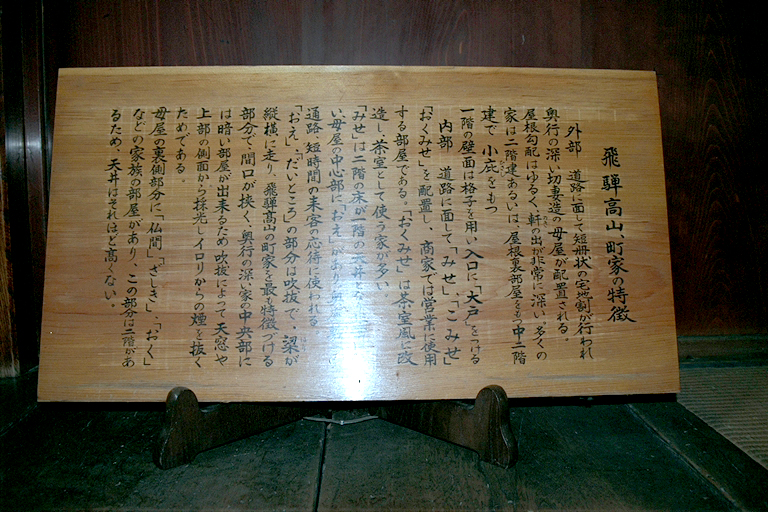 飛騨高山、町家の特徴
外部 道路に面して短冊状の宅地割が行われ
奥行の深い切妻造の母屋が配置される。
屋根勾配はゆるく、軒の出が非常に深い。多くの
家は二階建あるいは、屋根裏部屋をもつ中二階
建で、小庇をもつ
一階の壁面は格子を用い入口に「大戸」をつける
内部 道路に面して、「みせ」、「こみせ」
「おくみせ」を配置し、商家では営業に使用
する部屋である。「おくみせ」は茶室風に改
造し、茶室として使う家が多い。
「みせ」は二階の床が一階の天井とな
い母屋の中心部に「おえ」があり
通路、短時間の来客の応待に使われる
「おえ」、「だいどころ」の部分は吹抜で、梁が
縦横に走り、飛騨高山の町家を最も特徴づける
部分で、間口が狭く、奥行の深い家の中央部に
は暗い部屋が出来るため吹抜によって天窓や
上部の側面から採光しイロリからの煙を抜く
ためである。
母屋の裏側部分に「仏間」、「ざしき」、「おく」
などの家族の部屋があり、この部分は二階があ
るため、天井はそれほど高くない。